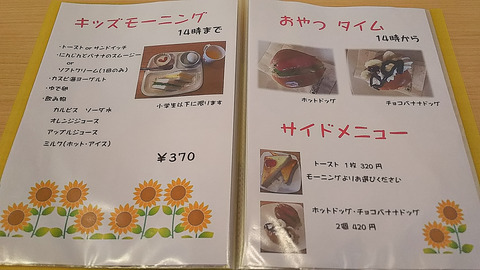 キッズモーニング
14時まで
・トースト or サンドイッチ
・にんじんとバナナのスムージー
or
ソフトクリーム(1日のみ)
・カスピ海ヨーグルト
・ゆで卵
・飲み物
カルピス ソーダ水
オレンジジュース
アップルジュース
ミルク(ホット・アイス)
小学生以下に限ります
￥370
おやつ タイム
14時から
ホットドッグ
チョコバナナドッグ
サイドメニュー
トースト 1枚 320円
モーニングよりお選びください
ホットドッグ・チョコバナナドッグ
2個 420円